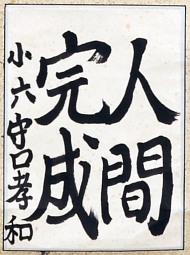 人間
完成
小六 守口孝和